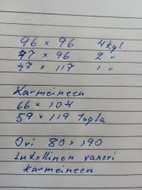 96 x 96 4 kpl
77 x 96 2 "
47 x 117 1 "
Karmeineen
66 x 104
59 x 119 tupla
Ovi 80 x 190
Lukollinen vaneri
karmeineen